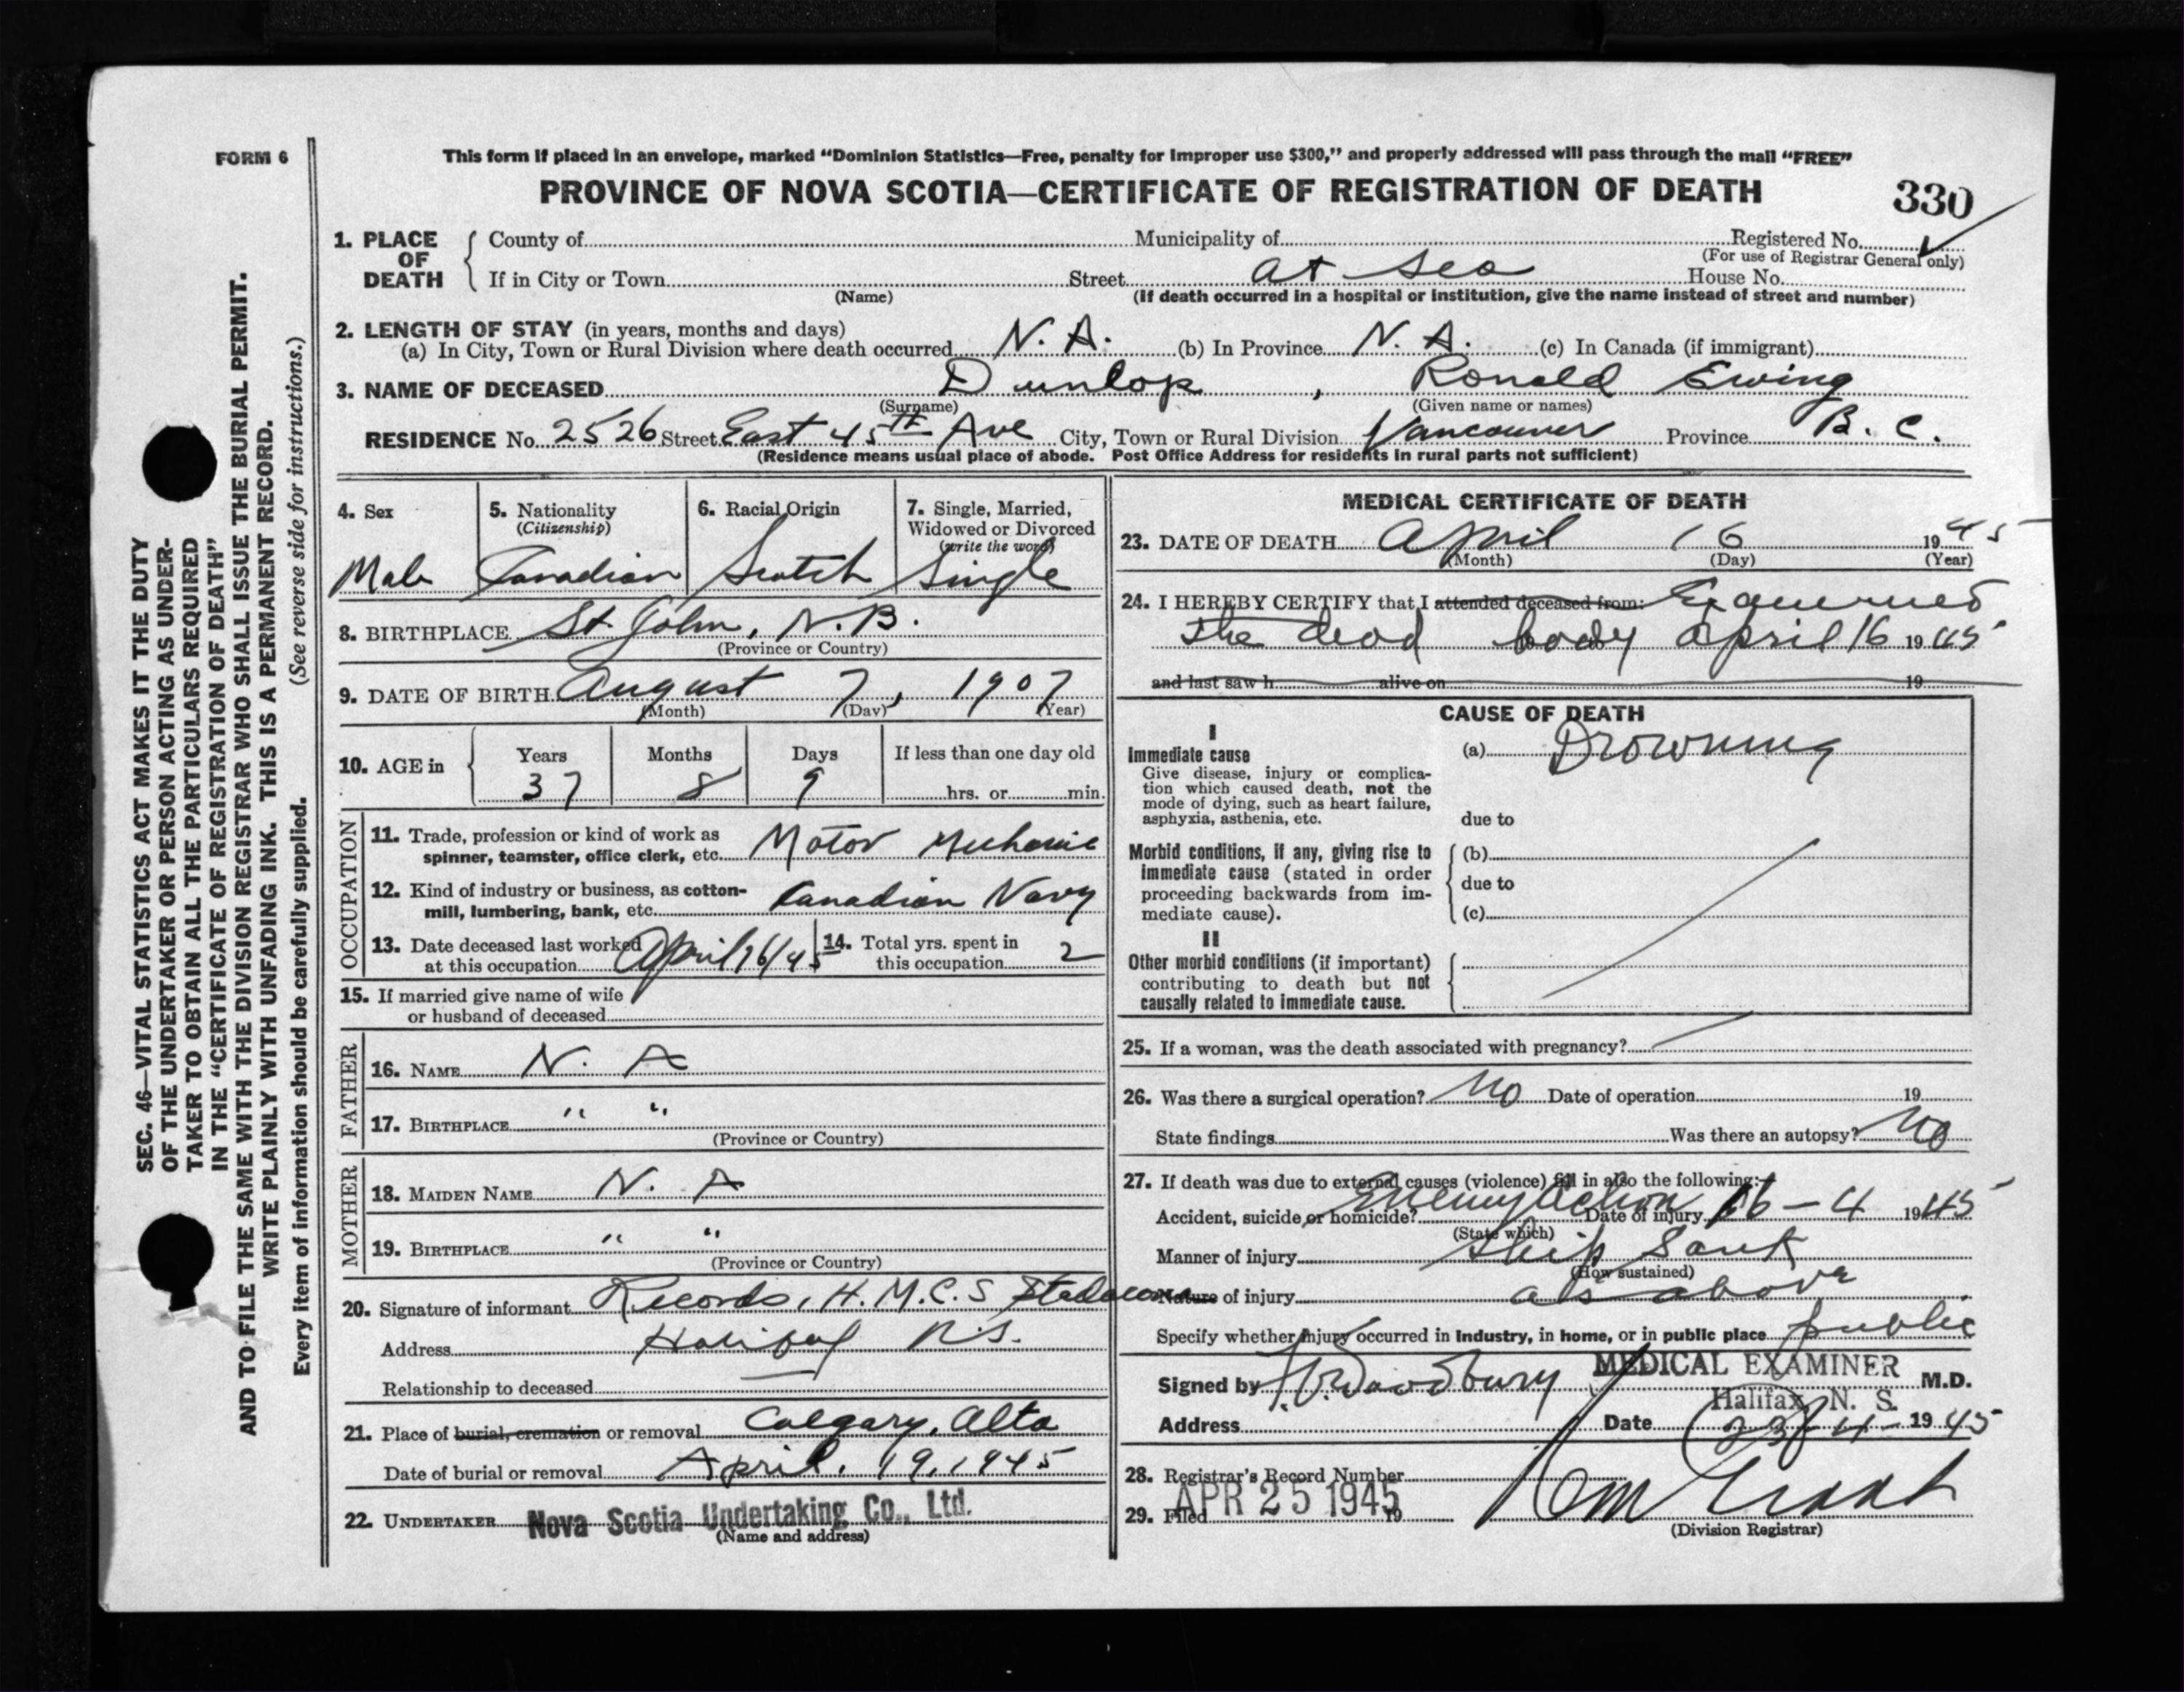 FORM 6
This form if placed in an envelope, marked “Dominion Statistics—Free, penalty for improper use $300,” and properly addressed will pass through the mail “FREE”
PROVINCE OF NOVA SCOTIA—CERTIFICATE OF REGISTRATION OF DEATH
330
1. PLACE OF DEATH
County of Municipality of Registered No.
(For use of Registrar General only)
If in City or Town Street at sea House No.
(Name) (If death occurred in a hospital or institution, give the name instead of street and number)
2. LENGTH OF STAY (in years, months and days)
(a) In City, Town or Rural Division where death occurred N. A. (b) In Province N. A. (c) In Canada (if immigrant)
3. NAME OF DECEASED Dunlop, Ronald Ewing
(Surname) (Given name or names)
RESIDENCE No. 2526 Street East 45TH Ave City, Town or Rural Division Vancouver Province B. C.
(Residence means usual place of abode. Post Office Address for residents in rural parts not sufficient)
4. Sex
Male
5. Nationality
(Citizenship)
Canadian
6. Racial Origin
Scotch
7. Single, Married,
Widowed or Divorced
(write the word)
Single
8. BIRTHPLACE St. John, N.B.
(Province or Country)
9. DATE OF BIRTH August 7, 1907
(Month) (Day) (Year)
10. AGE in
Years Months Days If less than one day old
37 8 9 hrs. or min.
OCCUPATION
11. Trade, profession or kind of work as
spinner, teamster, office clerk, etc. Motor Mechanic
12. Kind of industry or business, as cotton-
mill, lumbering, bank, etc. Canadian Navy
13. Date deceased last worked
at this occupation April 16/45
14. Total yrs. spent in
this occupation 2
15. If married give name of wife
or husband of deceased
FATHER
16. NAME N. A
17. BIRTHPLACE " "
(Province or Country)
MOTHER
18. MAIDEN NAME N. A
19. BIRTHPLACE " "
(Province or Country)
20. Signature of informant Records, H.M.C.S Stadacona
Address Halifax N.S.
Relationship to deceased
21. Place of burial, cremation or removal Calgary, Alta
Date of burial or removal April. 19, 1945
22. UNDERTAKER Nova Scotia Undertaking Co., Ltd.
(Name and address)
MEDICAL CERTIFICATE OF DEATH
23. DATE OF DEATH April 16 1945
(Month) (Day) (Year)
24. I HEREBY CERTIFY that I attended deceased from: Examined
the dead body April 16 1945
and last saw h alive on 19
CAUSE OF DEATH
I
Immediate cause
Give disease, injury or complica-
tion which caused death, not the
mode of dying, such as heart failure,
asphyxia, asthenia, etc.
(a) Drowning
due to
Morbid conditions, if any, giving rise to
immediate cause (stated in order
proceeding backwards from im-
mediate cause).
(b)
due to
(c)
II
Other morbid conditions (if important)
contributing to death but not
causally related to immediate cause.
25. If a woman, was the death associated with pregnancy?
26. Was there a surgical operation? No Date of operation 19
State findings Was there an autopsy? No
27. If death was due to external causes (violence) fill in also the following:
Accident, suicide or homicide? Enemy Action Date of injury 16-4 1945
(State which)
Manner of injury Ship Sank
(How sustained)
Nature of injury as above
Specify whether injury occurred in industry, in home, or in public place public
Signed by Woodbury MEDICAL EXAMINER M.D.
Halifax, N. S.
Address Date 23-4-1945
28. Registrar's Record Number
29. Filed APR 25 1945 19
(Division Registrar)
SEC. 46—VITAL STATISTICS ACT MAKES IT THE DUTY
OF THE UNDERTAKER OR PERSON ACTING AS UNDER-
TAKER TO OBTAIN ALL THE PARTICULARS REQUIRED
IN THE “CERTIFICATE OF REGISTRATION OF DEATH”
AND TO FILE THE SAME WITH THE DIVISION REGISTRAR WHO SHALL ISSUE THE BURIAL PERMIT.
WRITE PLAINLY WITH UNFADING INK. THIS IS A PERMANENT RECORD.
Every item of information should be carefully supplied. (See reverse side for instructions.)